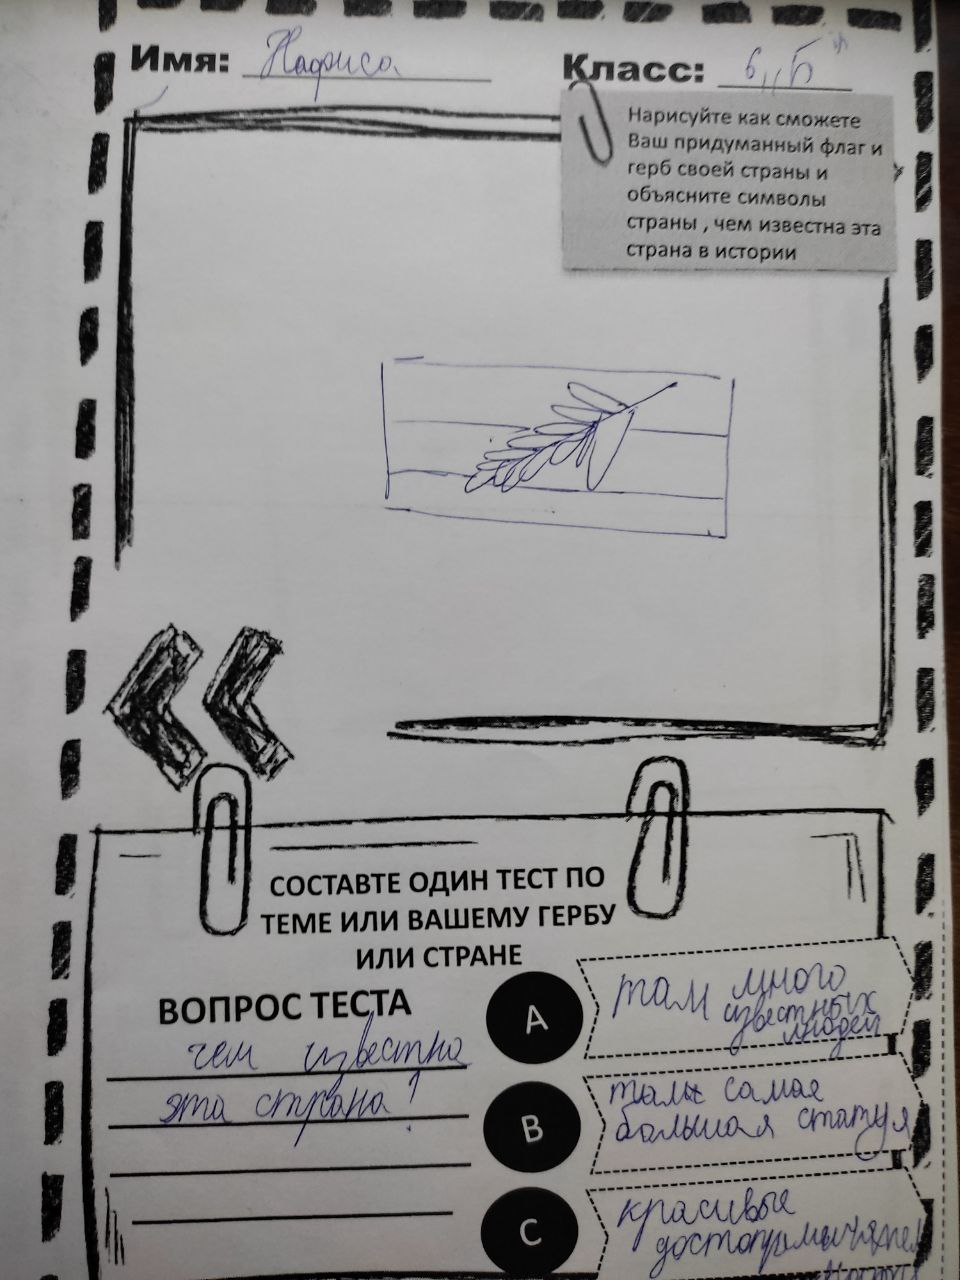 Имя: Нафиса
Класс: 6 "Б"
Нарисуйте как сможете
Ваш придуманный флаг и
герб своей страны и
объясните символы
страны , чем известна эта
страна в истории
СОСТАВТЕ ОДИН ТЕСТ ПО
ТЕМЕ ИЛИ ВАШЕМУ ГЕРБУ
ИЛИ СТРАНЕ
ВОПРОС ТЕСТА
чем известна
эта страна!
A
там много
известных
людей
B
там самая
большая статуя
C
красивые